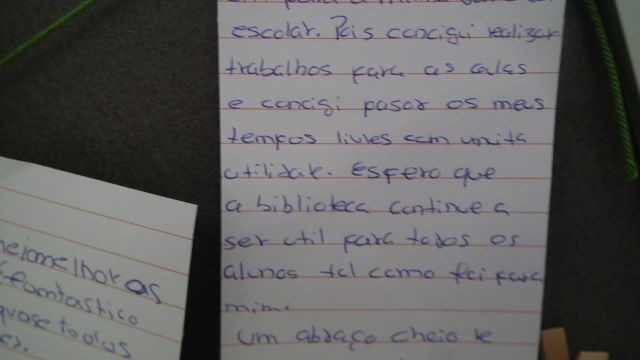 escolar. Pois concigui realizar
trabalhos para as aulas
e concigi pasar os meus
tempos livres com muita
utilidade. Espero que
a biblioteca continue a
ser util para todos os
alunos tal como foi para
mim.
Um abraço cheio de
melhor as
fantastico
quase todos